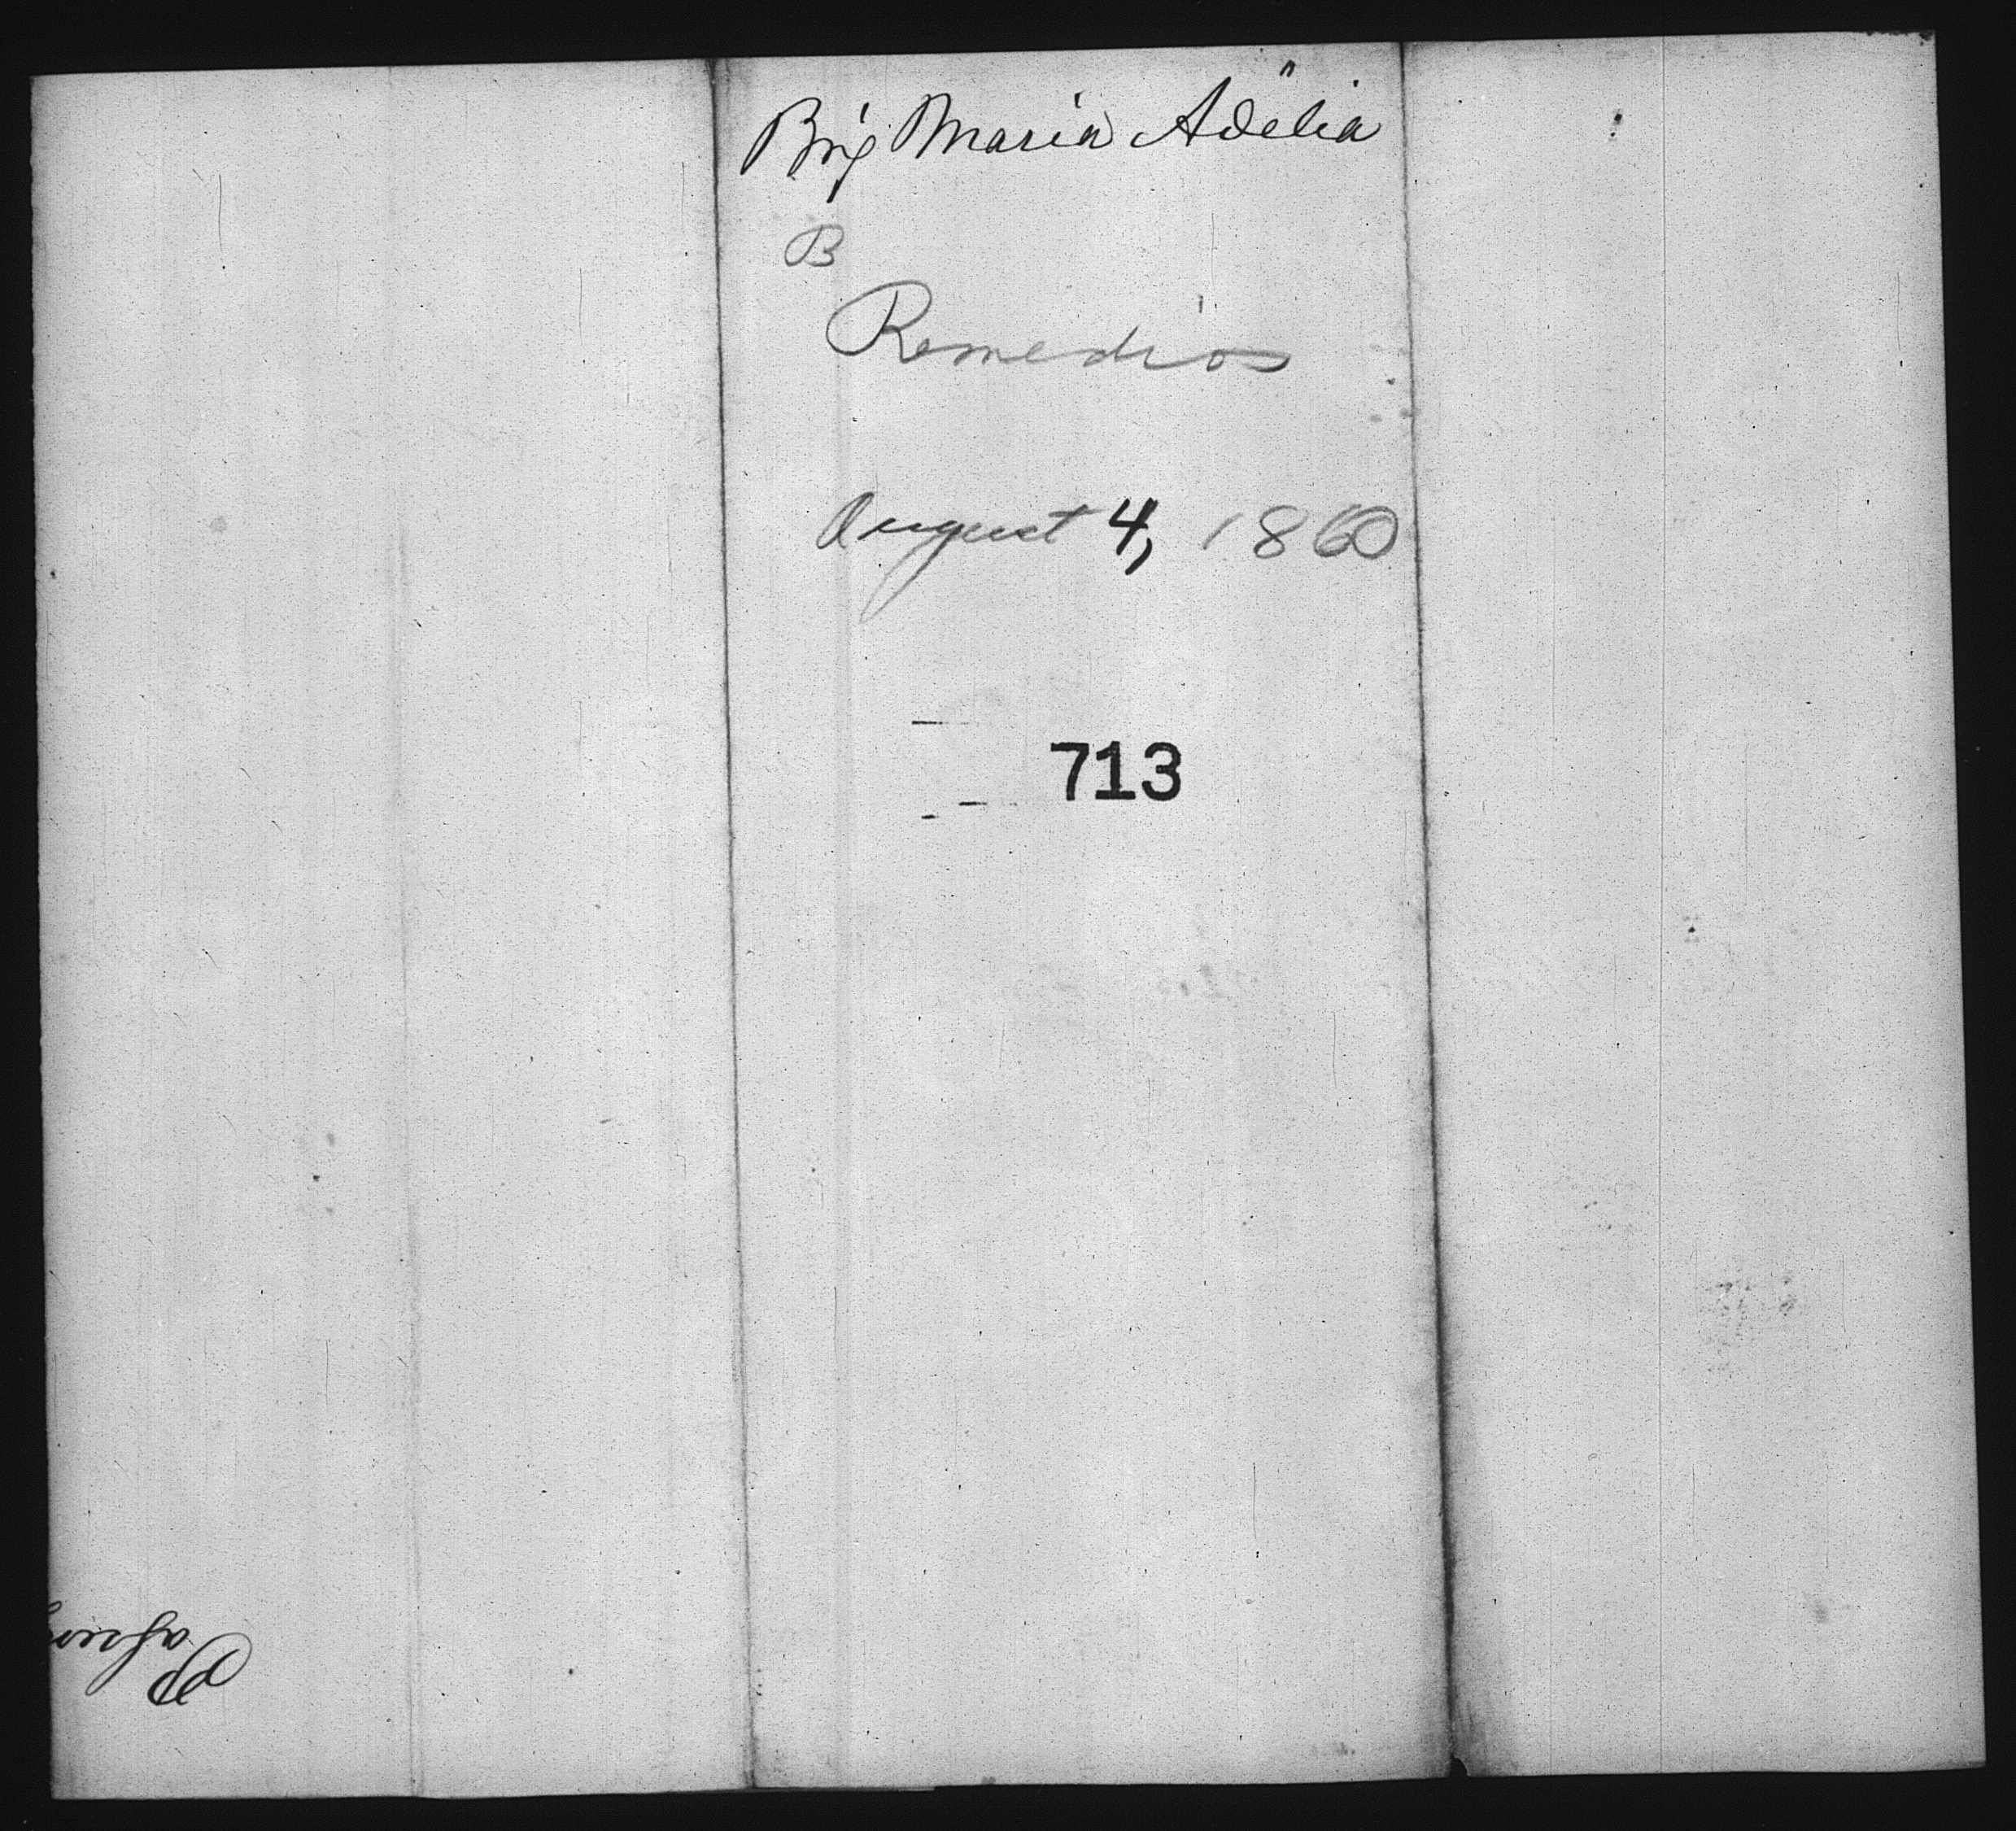 Brig Maria Adelia
B
Remedios
August 4, 1860
713